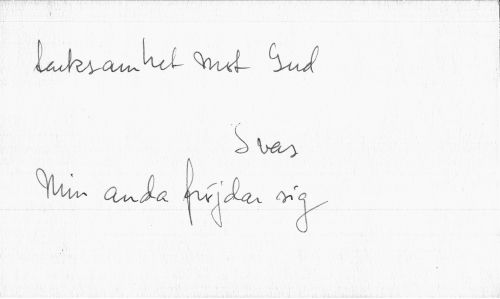 tacksamhet mot Gud
Svas
Min anda fröjdar sig